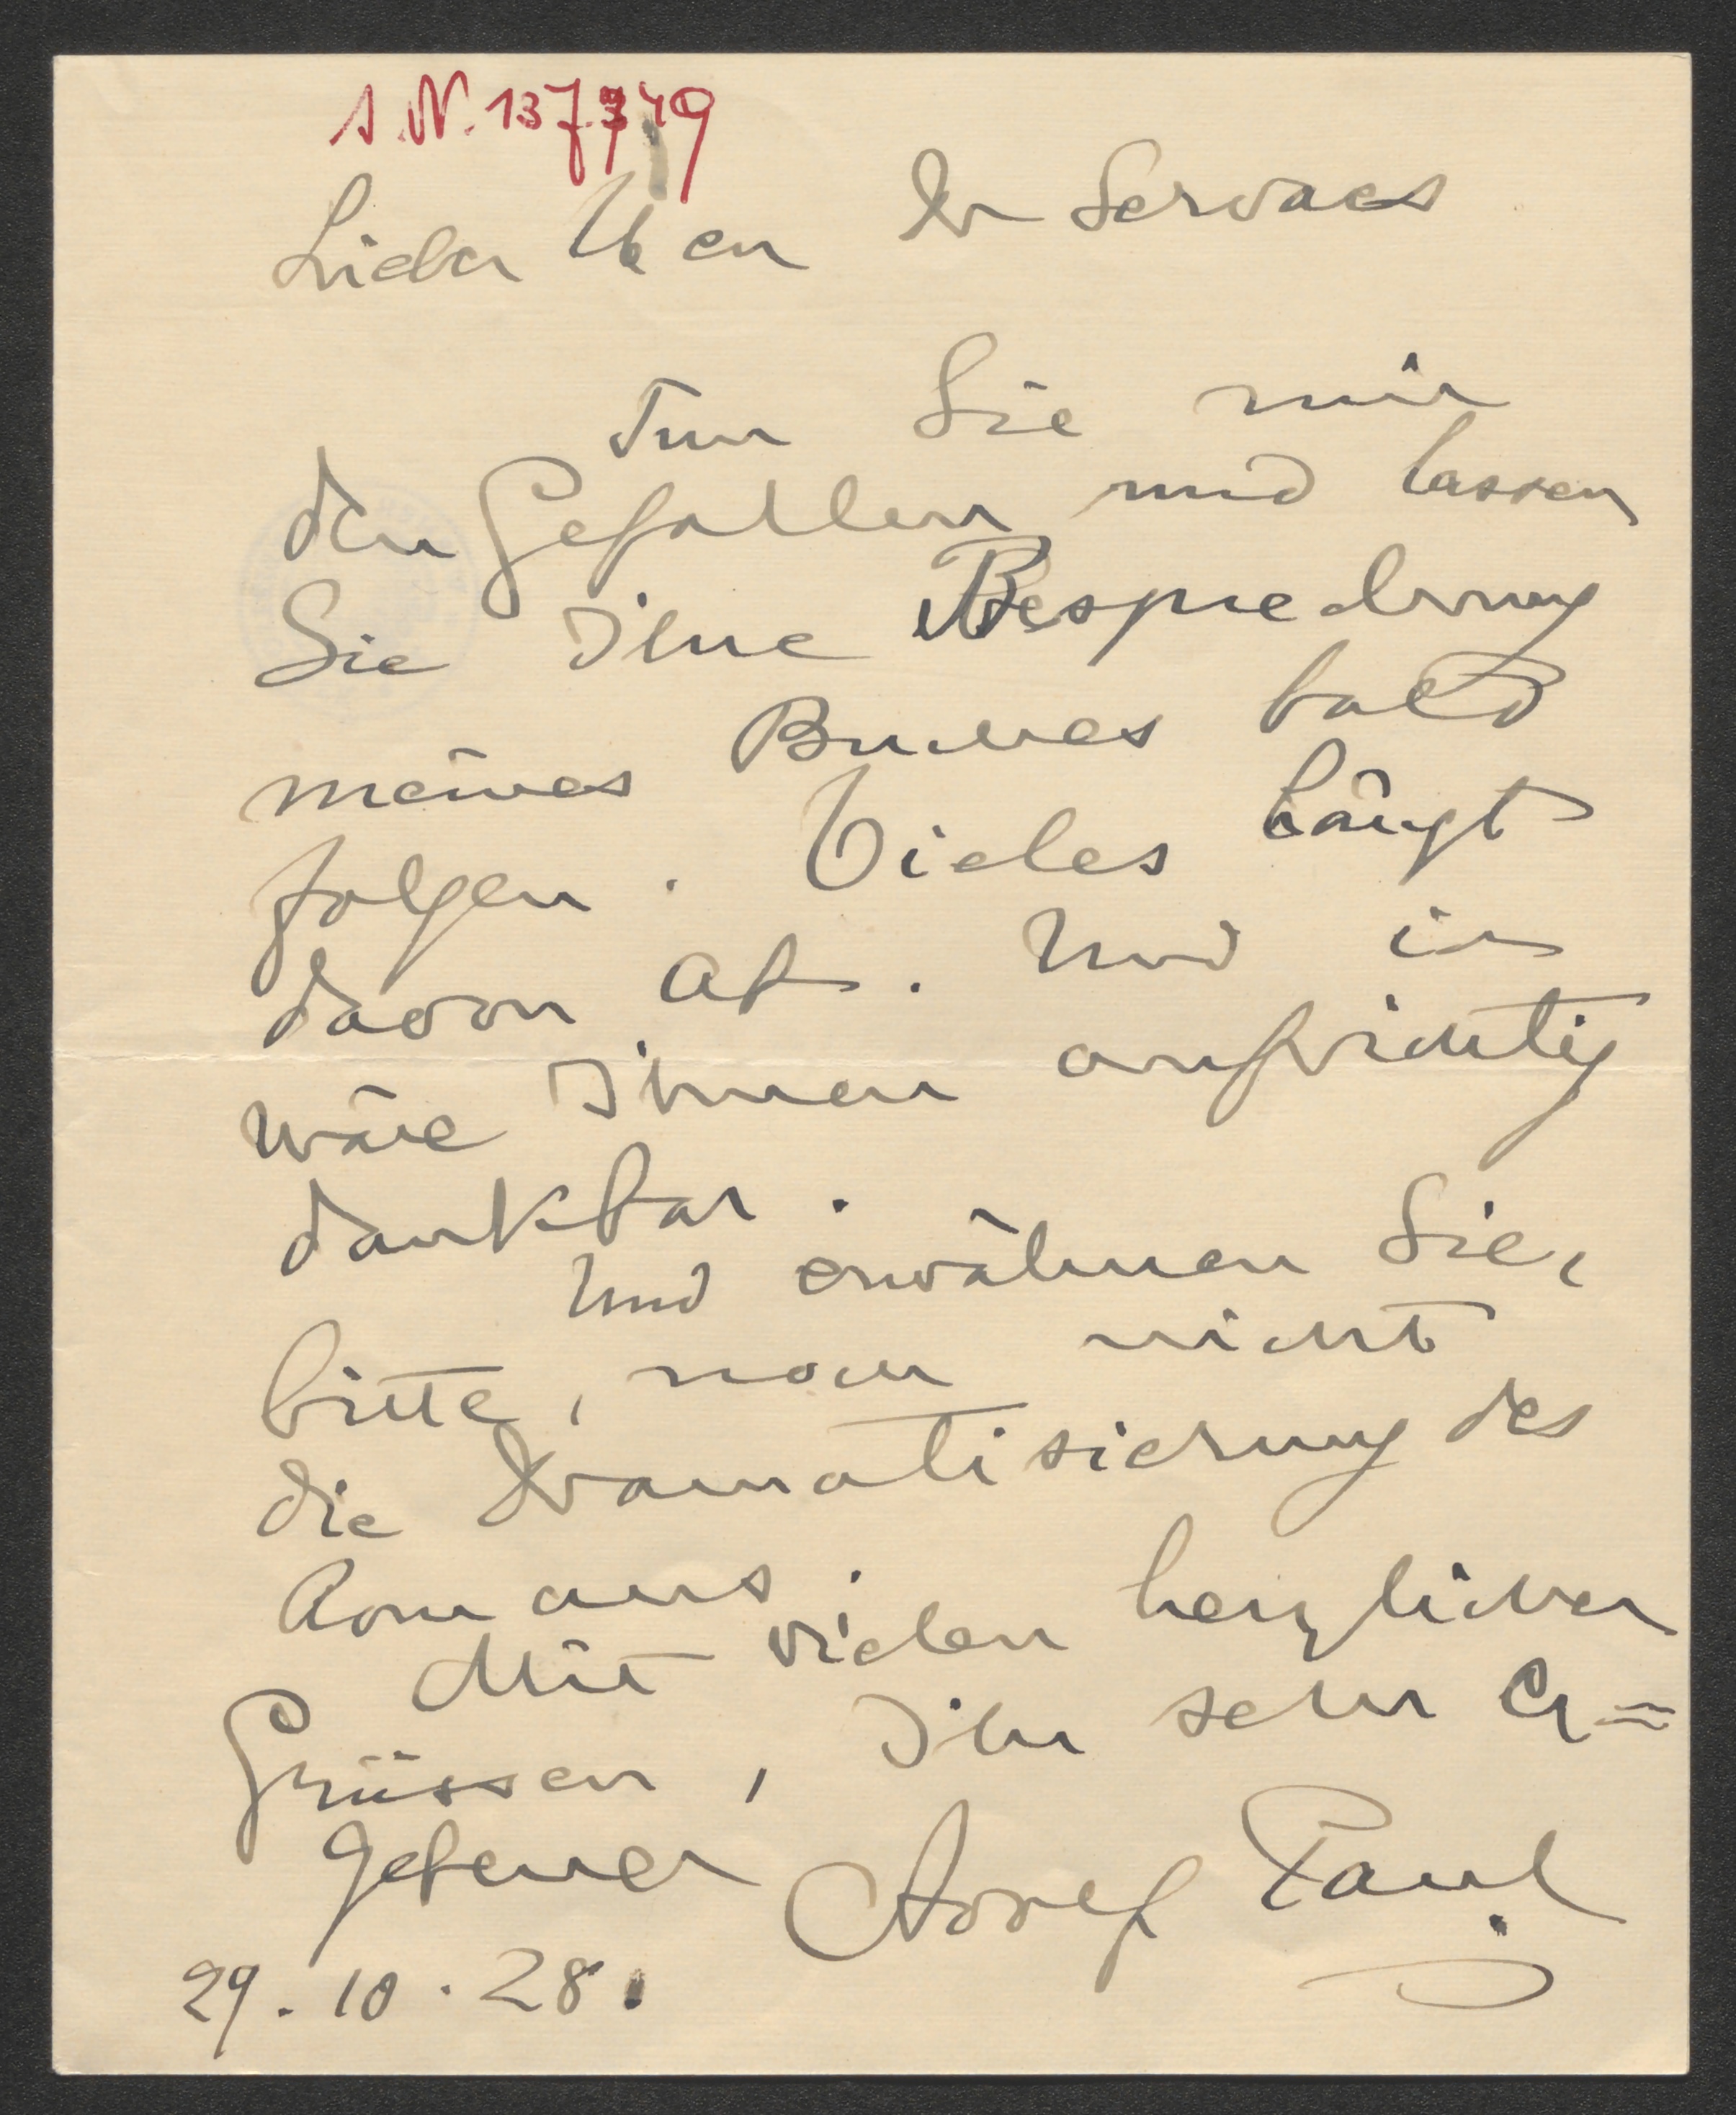 I.N. 137.749
Lieber Herr Dr Servaes
Tun Sie mir
den Gefallen und lassen
Sie Ihre Besprechung
meines Buches bald
folgen. Vieles hängt
davon ab. Und ich
wäre Ihnen aufrichtig
dankbar.
Und erwähnen Sie,
bitte, noch nicht
die Dramatisierung des
Romans.
Mit vielen herzlichen
Grüssen, Ihr sehr er=
gebener Adolf Paul
29.10.28.